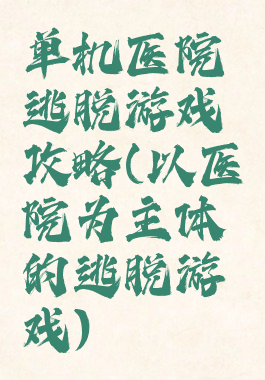 单机医院
逃脱游戏
攻略(以医
院为主体
的逃脱游
戏)